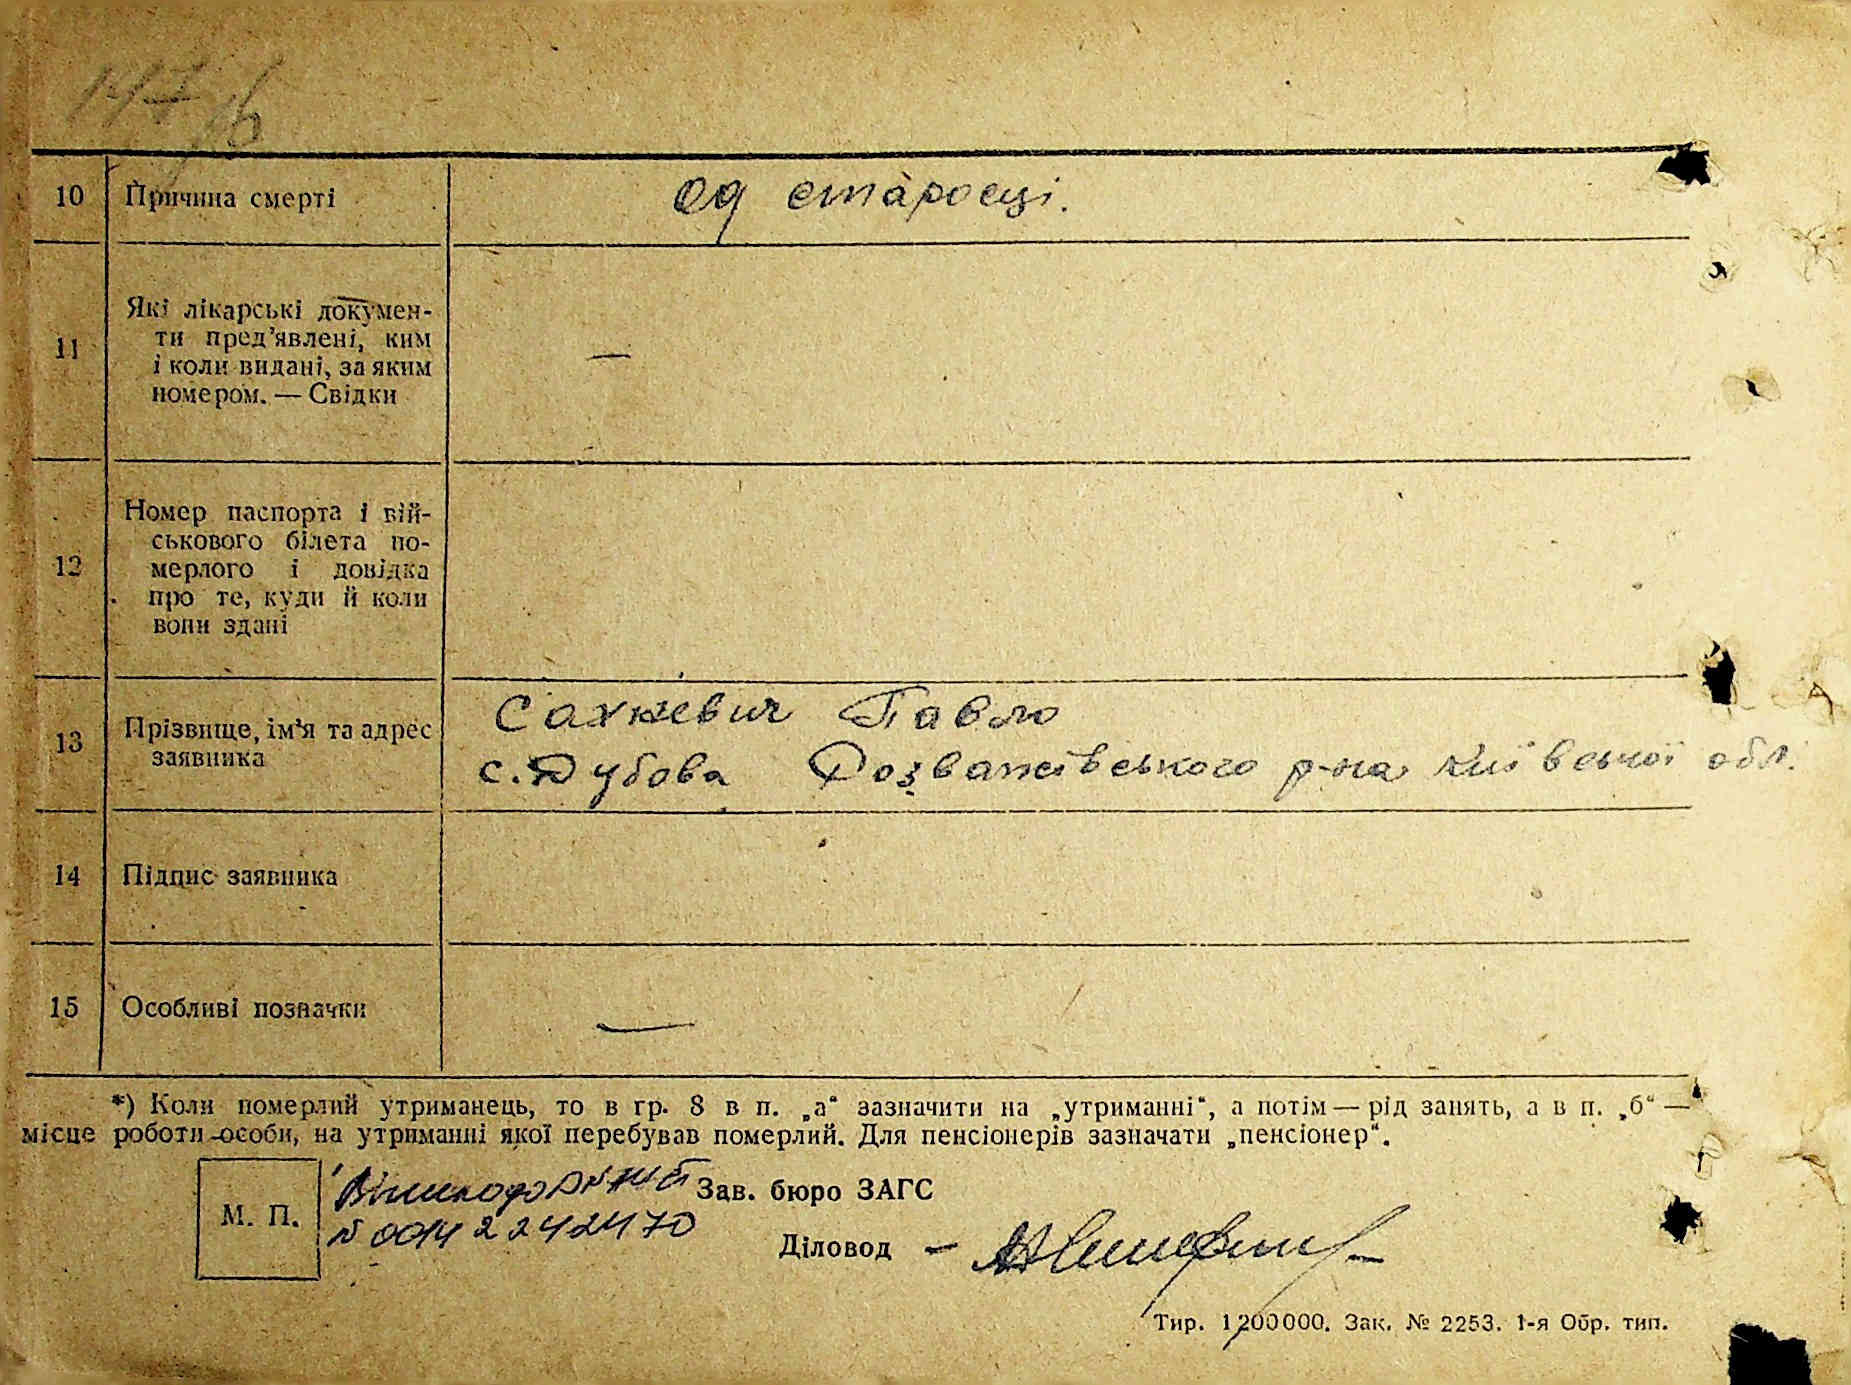 10 Причина смерті
од старосці.
11 Які лікарські докумен-
ти пред’явлені, ким
і коли видані, за яким
номером. — Свідки
—
12 Номер паспорта і вій-
ськового білета по-
мерлого і довідка
про те, куди й коли
вони здані
13 Прізвище, ім’я та адрес
заявника
Сахневич Павло
с. Дубова Розважівського р-на Київської обл.
14 Підпис заявника
15 Особливі позначки
—
*) Коли померлий утриманець, то в гр. 8 в п. „а“ зазначити на „утриманні“, а потім — рід занять, а в п. „б“ —
місце роботи особи, на утриманні якої перебував померлий. Для пенсіонерів зазначати „пенсіонер“.
М. П.
Зав. бюро ЗАГС
Діловод —
Тир. 1200000. Зак. № 2253. 1-я Обр. тип.